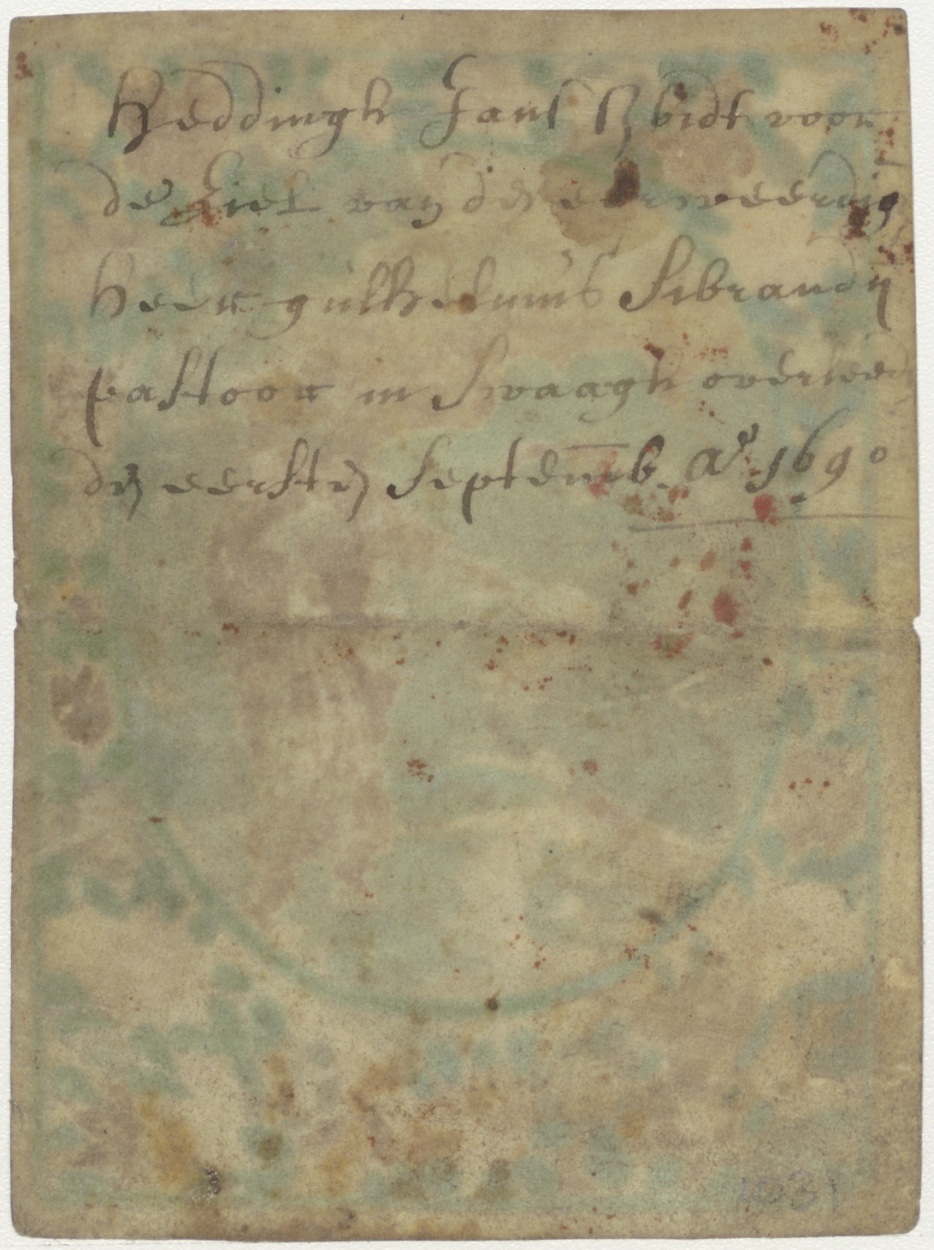 Heddingh Jans bidt voor
de Ziel van den eerweerdig
Heer gulhelmus Sibrandij
pastoor in Swaagh overleen
den eersten Septemb. Ao 1690